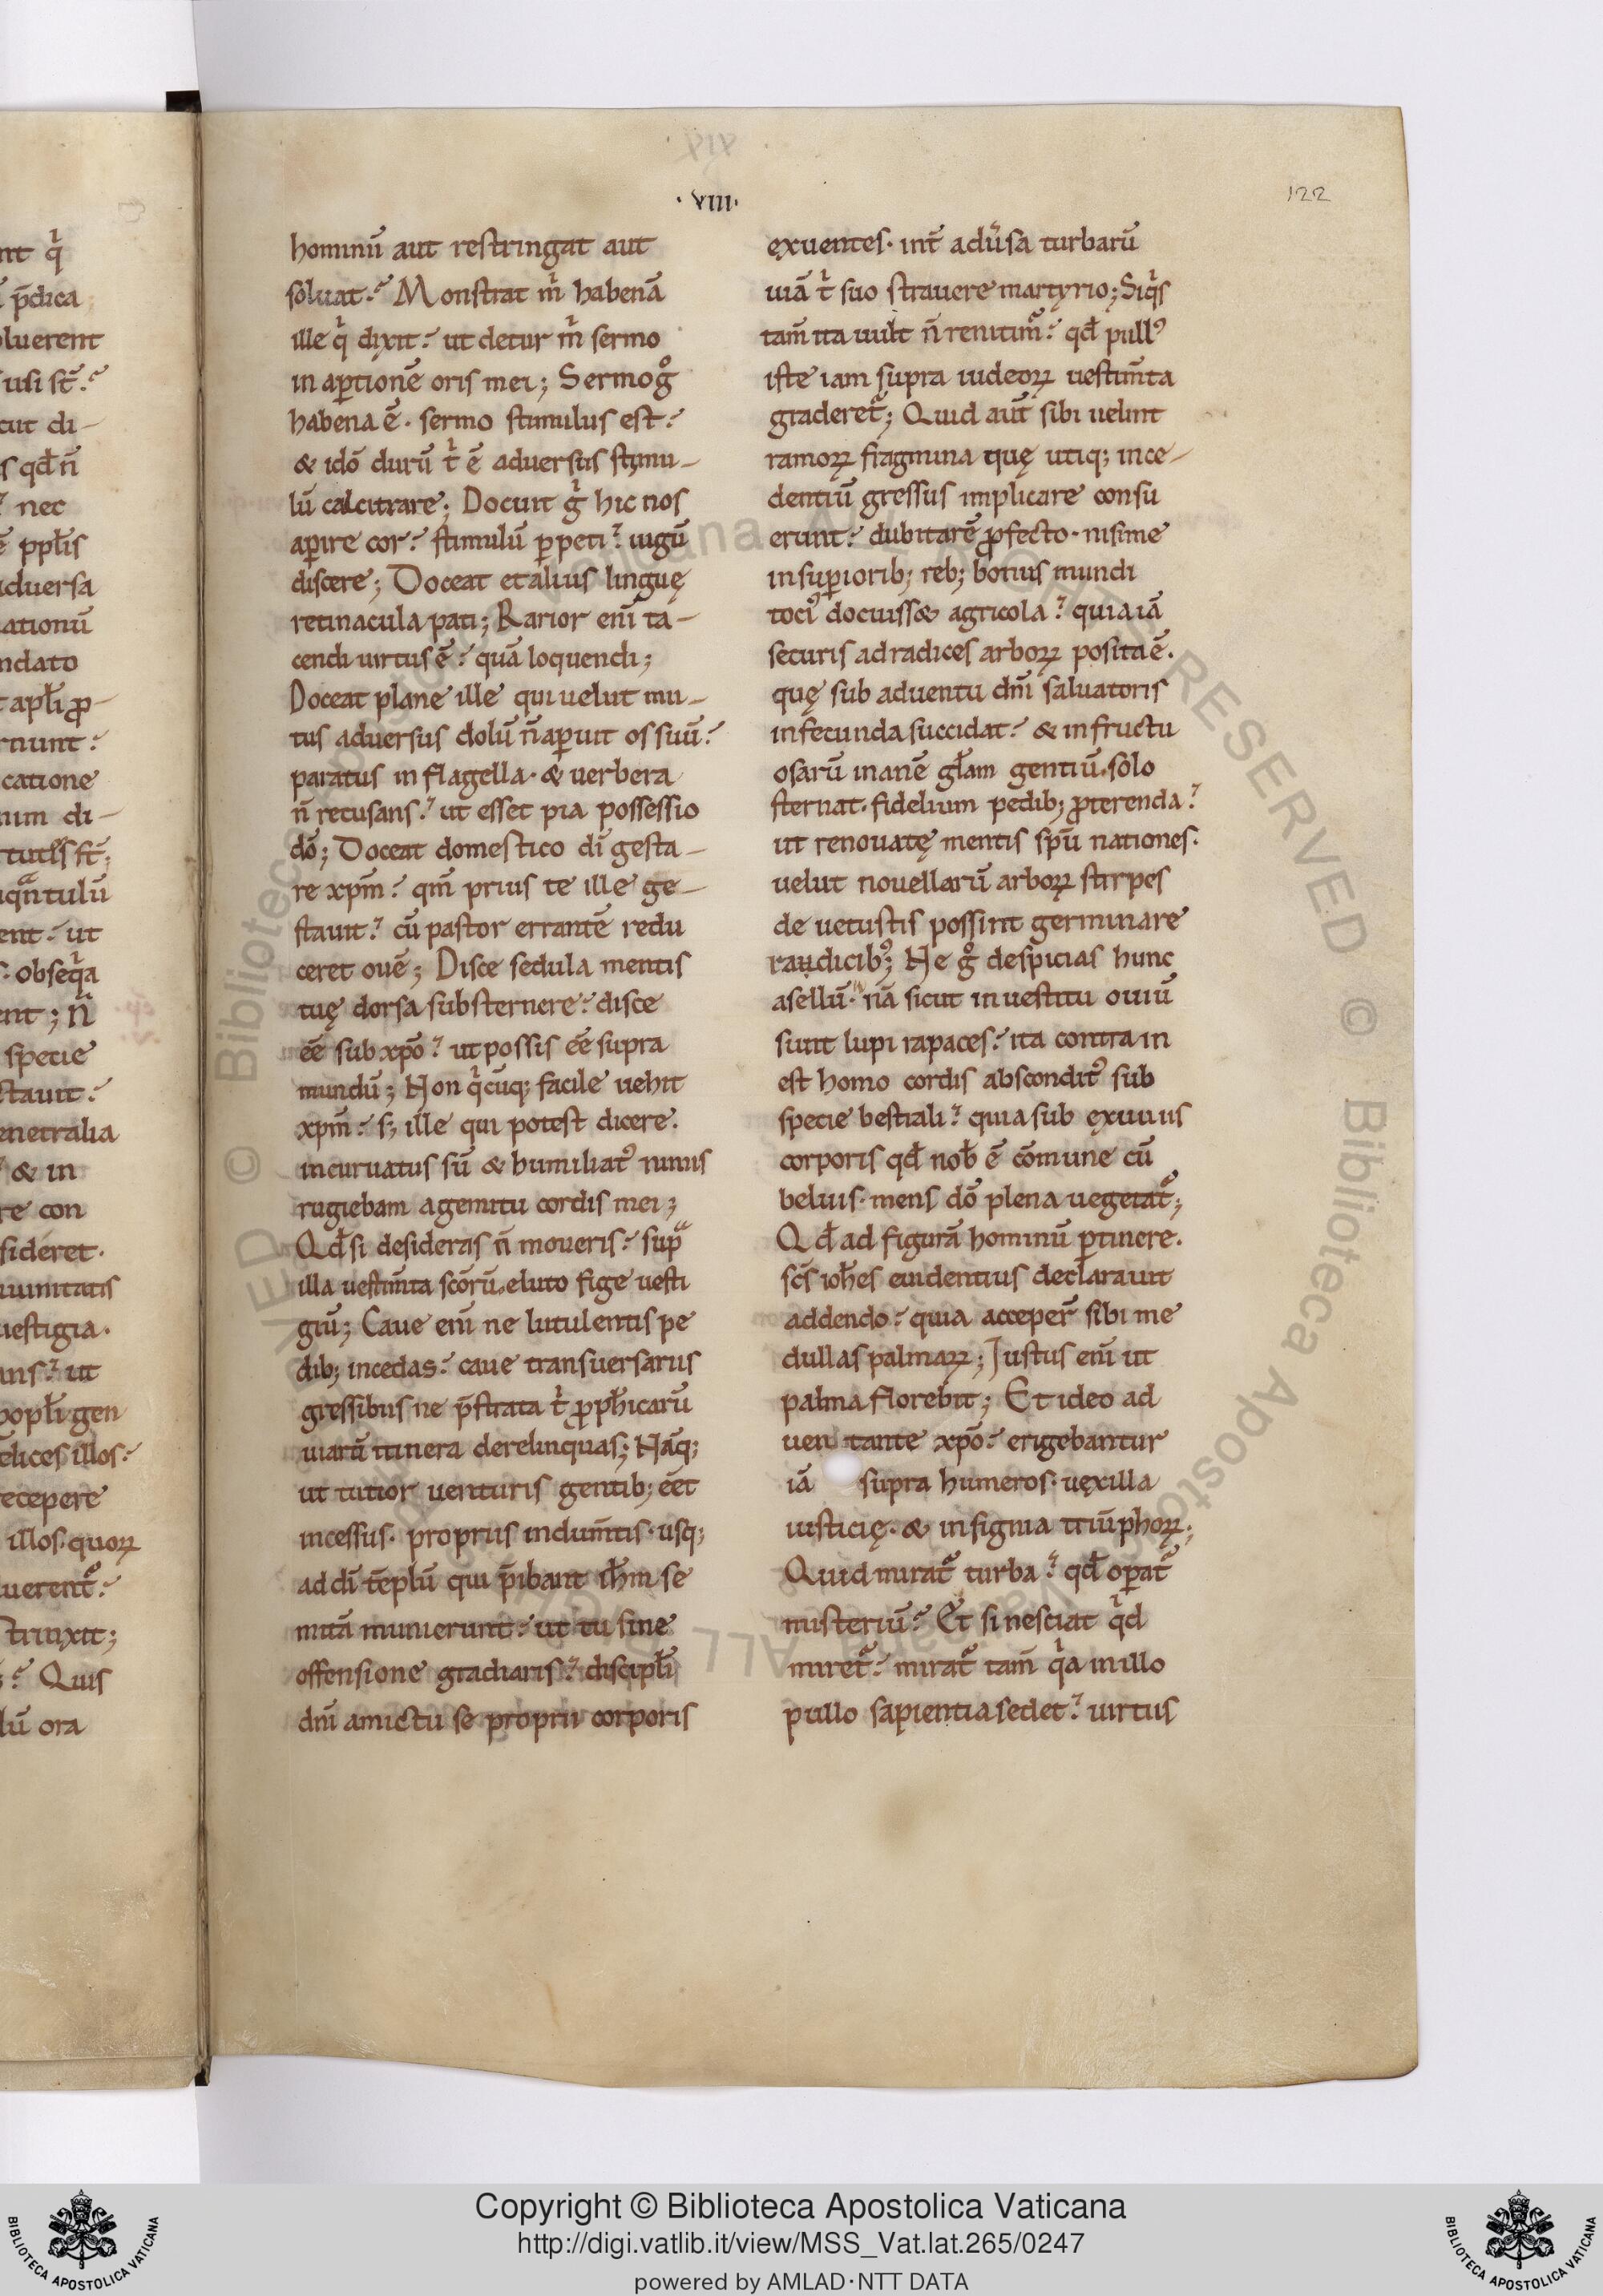 122
·VIII·
hominū aut restringat aut
soluat? Monstrat m̍ habenā
ille q̍ dixit? ut detur m̍ sermo
in aꝑtionē oris mei; Sermo gͦ
habena ē. sermo stimulus est?
& idō durū t̍ ē adversus stimu-
lū calcitrare; Docuit g̍ hic nos
aꝑire cor? stimulū ꝑpeti? iugū
discere; Doceat et alius linguę
retinacula pati; Rarior eni̅ ta-
cendi uirtus ē? quā loquendi;
Doceat plane ille qui uelut mu-
tus adversus dolū n̄ aꝑuit os suū?
paratus in flagella. & uerbera
n̄ recusans? ut esset pia possessio
dō; Doceat domestico dī gesta-
re xpm̄? qm̄ prius te ille ge-
stauit? cū pastor errantē redu
ceret ouē; Disce sedula mentis
tuę dorsa substernere? disce
ēē sub xpō? ut possis ēē supra
mundū; Non q̍cūq; facile uehit
xpm̄? s; ille qui potest dicere.
incuruatus sū & humiliatꝰ nimis
rugiebam a gemitu cordis mei;
Qđ si desideras n̄ moueris? supͣ
illa uestim̄ta scōrū. eluto fige uesti
giū; Caue eni̅ ne lutulentis pe
dib; incedas? caue transuersariis
gressibus ne p̄strata t̍ ꝓpħicarū
uiarū itinera derelinquas; Nāq;
ut tutior uenturis gentib; ēēt
incessus. propriis indum̄tis. usq;
ad dī tēplū qui p̄ibant iħm se
mitā munierunt? ut tu sine
offensione gradiaris? discipłi
dnī amictu se proprii corporis
exuentes. int̄ adūsa turbarū
uiā t̍ suo strauere martyrio; Siq̍s
tam̄ ita uult n̄ renitim̃? qđ pullꝰ
iste iam supra iudeoꝝ uestim̄ta
graderet̃; Quid aūt sibi uelint
ramoꝝ fragmina quę utiq; ince-
dentiū gressus implicare consu
erunt? dubitarē ꝓfecto. nisi me
in suꝑiorib; reb; bonus mundi
tociꝰ docuiss& agricola? quia iā
securis ad radices arboꝝ posita ē.
quę sub aduentu dnī saluatoris
infecunda succidat? & infructu
osarū inanē gła̅m gentiū. solo
sternat. fidelium pedib; ꝓterenda?
ut renouatę mentis spū nationes.
uelut nouellarū arboꝝ stirpes
de uetustis possint germinare
raudicibꝰ; Ne gͦ despicias hunc
asellū. nā sicut in uestitu ouiū
sunt lupi rapaces? ita contra in
est homo cordis absconditꝰ sub
specie bestiali? quia sub exuuiis
corporis qđ noƀ ē cōmune cū
beluis. mens dō plena uegetat̃;
Qđ ad figurā hominū ꝑtinere.
scs̄ ioħes euidentius declarauit
addendo? quia acceper̄ sibi me
dullas palmaꝝ; Iustus eni̅ ut
palma florebit; Et ideo ad
uen tante xpō? erigebantur
iā supra humeros. uexilla
iusticię. & insignia triūphoꝝ;
Quid mirat̃ turba? qđ oꝑat̃
misteriū? Et si nesciat q̍d
miret̃? mirat̃ tam̄ q̍a in illo
pullo sapientia sedet? uirtus
Copyright © Biblioteca Apostolica Vaticana
http://digi.vatlib.it/view/MSS_Vat.lat.265/0247
powered by AMLAD·NTT DATA